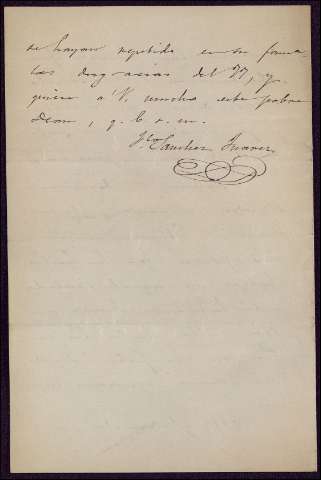 se hayan repetido en su fami-
las desgracias del 77, y
quiere a V. mucho este pobre
Dean, q. b. s. m.
Fco Sanchez Juarez